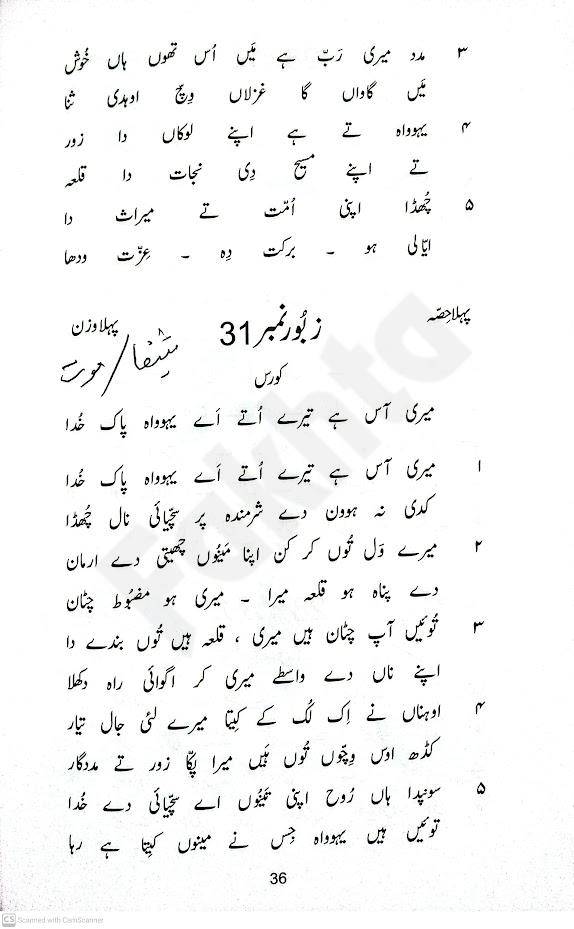 ۳ مدد میری رَبّ ہے مَیں اُس تھوں ہاں خُوش
مَیں گاواں گا غزلاں وِچّ اوہدی ثنا
۴ یہوواہ تے ہے اپنے لوکاں دا زور
تے اپنے مسیح دِی نجات دا قلعہ
۵ چُھڈا اپنی اُمّت تے میراث دا
ایّالی ہو ۔ برکت دِہ ۔ عِزّت ودھا
پہلا حِصّہ
زبُور نمبر 31
پہلا وزن
کورس
میری آس ہے تیرے اُتے اَے یہوواہ پاک خُدا
۱ میری آس ہے تیرے اُتے اَے یہوواہ پاک خُدا
کدی نہ ہوون دے شرمندہ پر سچّیائی نال چُھڈا
۲ میرے وَل تُوں کر کن اپنا مَینُوں چھیتی دے ارمان
دے پناہ ہو قلعہ میرا ۔ میری ہو مضبُوط چٹان
۳ تُوئیں آپ چٹان ہیں میری ، قلعہ ہیں تُوں بندے دا
اپنے ناں دے واسطے میری کر اگوائی راہ دکھلا
۴ اوہناں نے اِک لُک کے کِیتا میرے لئی جال تیار
کڈھ اوس وِچّوں تُوں ہَیں میرا پکّا زور تے مددگار
۵ سونپدا ہاں رُوح اپنی تَینُوں اے سچّیائی دے خُدا
توئیں ہیں یہوواہ جِس نے مینوں کِیتا ہے رہا
36
CS Scanned with CamScanner
Fakhta